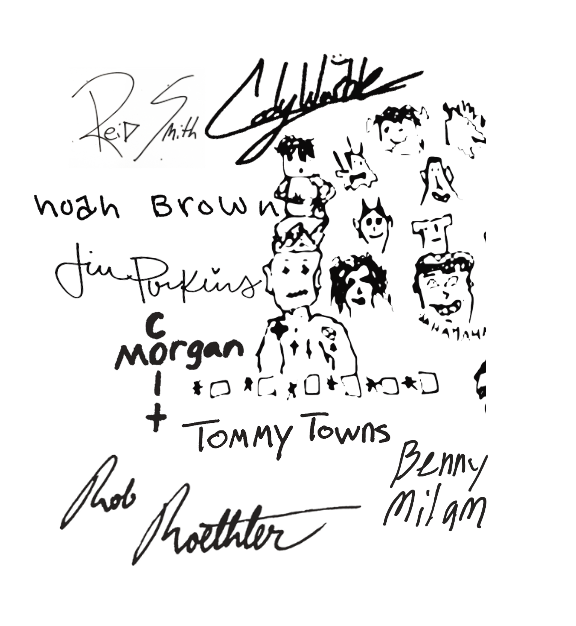 Reid Smith
noah Brown
Jim Perkins
Morgan
Colt
Tommy Towns
Benny
Milam
Rob